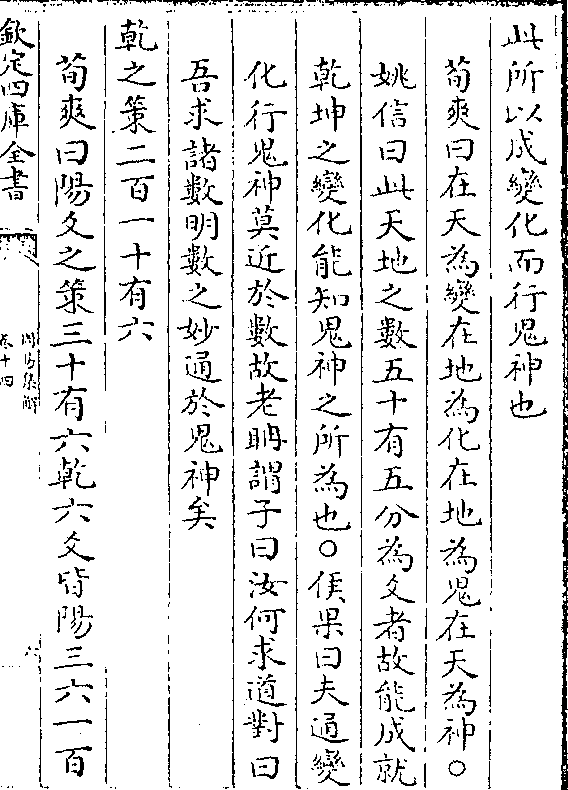 此所以成變化而行鬼神也
荀爽曰在天為變在地為化在地為鬼在天為神○
姚信曰此天地之數五十有五分為爻者故能成就
乾坤之變化能知鬼神之所為也○侯果曰夫通變
化行鬼神莫近於數故老耼謂子曰汝何求道對曰
吾求諸數明數之妙通於鬼神矣
乾之策二百一十有六
荀爽曰陽爻之策三十有六乾六爻皆陽三六一百
欽定四庫全書
周易集解
卷十四